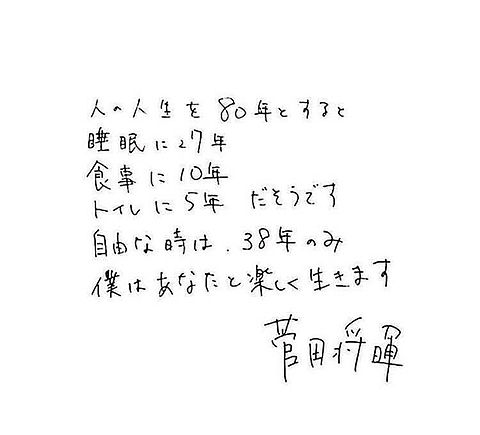 人の人生を80年とすると
睡眠に27年
食事に10年
トイレに5年 だそうです
自由な時は、38年のみ
僕はあなたと楽しく生きます
菅田将暉